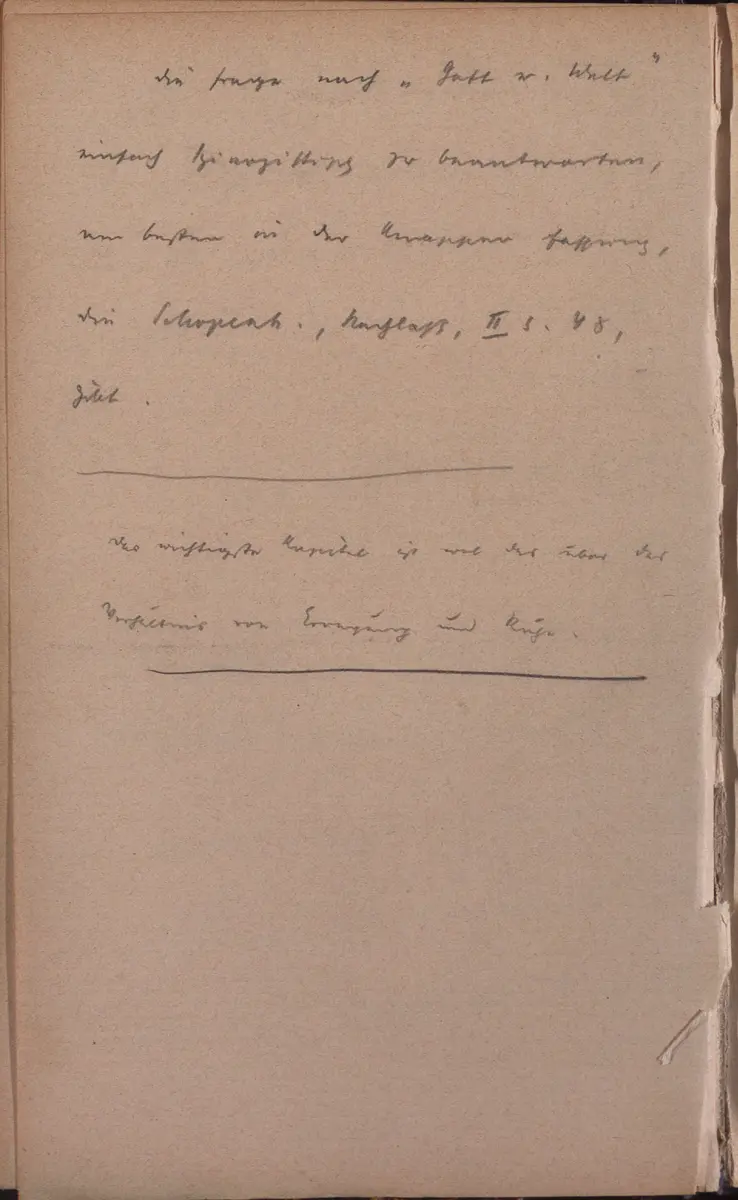 Die Frage nach „Gott u. Welt“
einfach zu beantworten,
am besten in der knappen Fassung,
die Schopenh., Nachlaß, II S. 48,
gibt.
Das wichtigste Kapitel ist wol das über das
Verhältnis von Erregung und Ruhe.